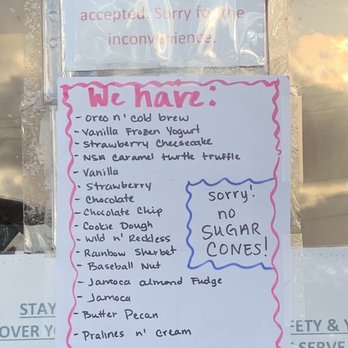 accepted. Sorry for the
inconvenience.
We have:
- Oreo n' cold brew
- Vanilla Frozen Yogurt
- Strawberry Cheesecake
- NSA caramel turtle truffle
- Vanilla
- Strawberry
- Chocolate
- Chocolate Chip
- Cookie Dough
- Wild n' Reckless
- Rainbow Sherbet
- Baseball Nut
- Jamoca almond Fudge
- Jamoca
- Butter Pecan
- Pralines n' cream
sorry!
no
SUGAR
CONES!
STAY
OVER YO
ETY & Y
SERVE